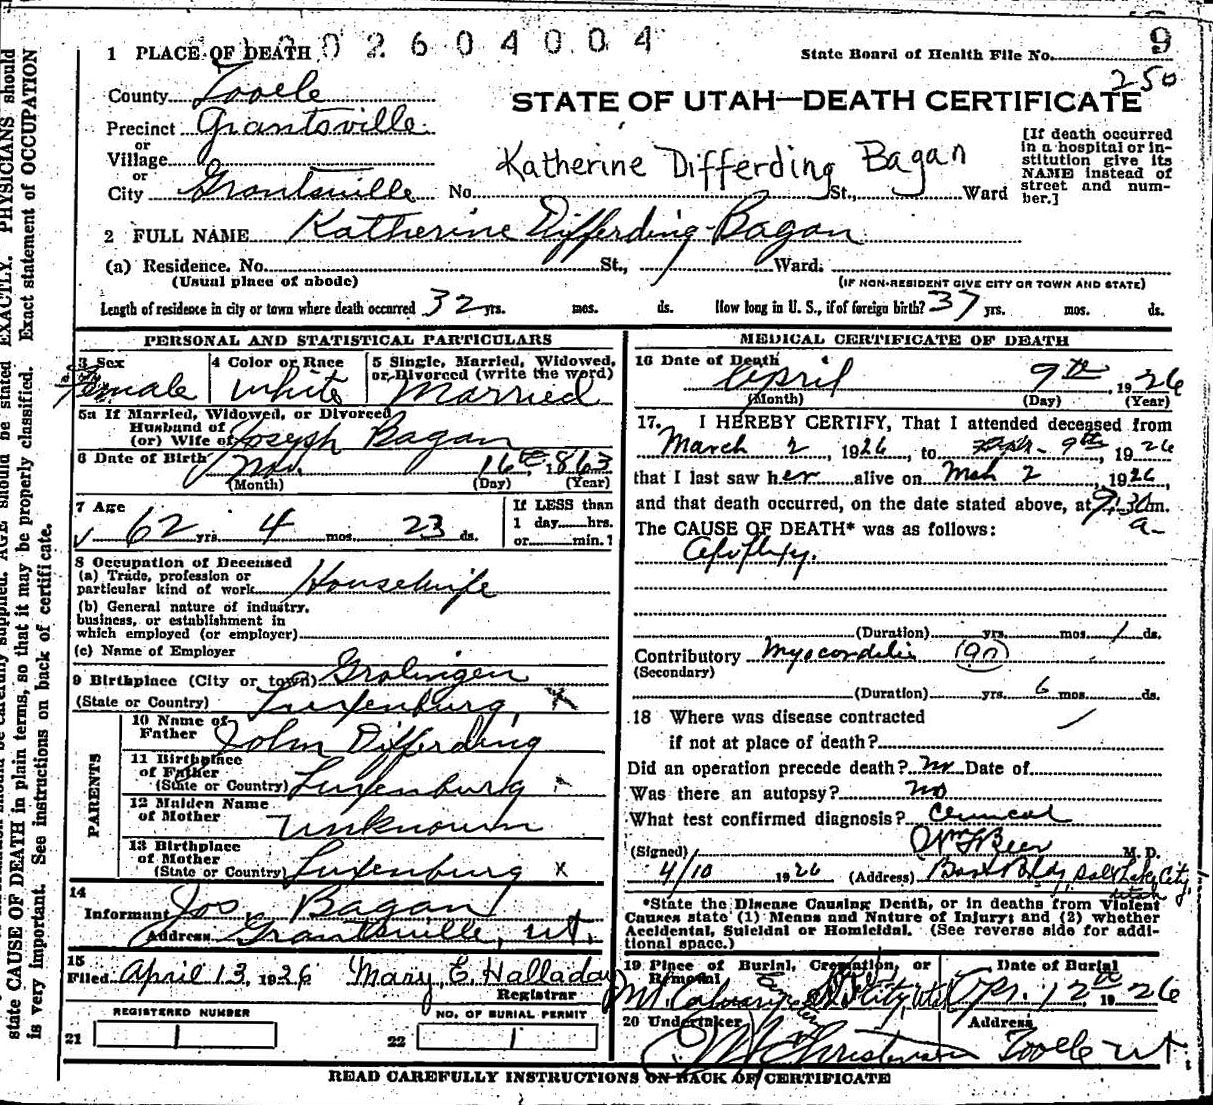 1 PLACE OF DEATH 02604004 State Board of Health File No. 9
250
County Tooele
STATE OF UTAH—DEATH CERTIFICATE
Precinct Grantsville
or
Village
or
City Grantsville No. Katherine Differding Bagan St., Ward
[If death occurred
in a hospital or in-
stitution give its
NAME instead of
street and num-
ber.]
2 FULL NAME Katherine Differding Bagan
(a) Residence. No. St., Ward.
(Usual place of abode) (IF NON-RESIDENT GIVE CITY OR TOWN AND STATE)
Length of residence in city or town where death occurred 32 yrs. mos. ds. How long in U. S., if of foreign birth? 37 yrs. mos. ds.
PERSONAL AND STATISTICAL PARTICULARS
3 Sex
Female
4 Color or Race
White
5 Single, Married, Widowed,
or Divorced (write the word)
Married
5a If Married, Widowed, or Divorced
Husband of
(or) Wife of Joseph Bagan
6 Date of Birth Nov. 16th 1863
(Month) (Day) (Year)
7 Age
62 yrs. 4 mos. 23 ds.
If LESS than
1 day hrs.
or min.?
8 Occupation of Deceased
(a) Trade, profession or
particular kind of work Housewife
(b) General nature of industry,
business, or establishment in
which employed (or employer)
(c) Name of Employer
9 Birthplace (City or town) Grolingen
(State or Country) Luxenburg, X
PARENTS
10 Name of
Father John Differding
11 Birthplace
of Father
(State or Country) Luxenburg
12 Maiden Name
of Mother Unknown
13 Birthplace
of Mother
(State or Country) Luxenburg X
14
Informant Jos Bagan
Address Grantsville, Ut.
15
Filed April 13, 1926 Mary E. Halladay
Registrar
REGISTERED NUMBER
21
NO. OF BURIAL PERMIT
22
MEDICAL CERTIFICATE OF DEATH
16 Date of Death
April 9th, 1926
(Month) (Day) (Year)
17. I HEREBY CERTIFY, That I attended deceased from
March 2, 1926, to Apr. 9th, 1926
that I last saw her alive on Mch 2, 1926,
and that death occurred, on the date stated above, at 9:30 m.
a-
The CAUSE OF DEATH* was as follows:
Apoplexy.
(Duration) yrs. mos. 1 ds.
Contributory Myocarditis (90)
(Secondary)
(Duration) yrs. 6 mos. ds.
18 Where was disease contracted
if not at place of death?
Did an operation precede death? no Date of
Was there an autopsy? no
What test confirmed diagnosis? Clinical
(Signed) Wm F Beer M. D.
4/10 1926 (Address) Bost Bldg Salt Lake City,
Utah
*State the Disease Causing Death, or in deaths from Violent
Causes state (1) Means and Nature of Injury; and (2) whether
Accidental, Suicidal or Homicidal. (See reverse side for addi-
tional space.)
19 Place of Burial, Cremation, or
Removal
Mt. Calvary
Date of Burial
Apr. 12th 1926
20 Undertaker
Christensen
Address
Tooele Ut.
READ CAREFULLY INSTRUCTIONS ON BACK OF CERTIFICATE
EXACTLY. PHYSICIANS should
state CAUSE OF DEATH in plain terms, so that it may be properly classified. Exact statement of OCCUPATION
is very important. See instructions on back of certificate.